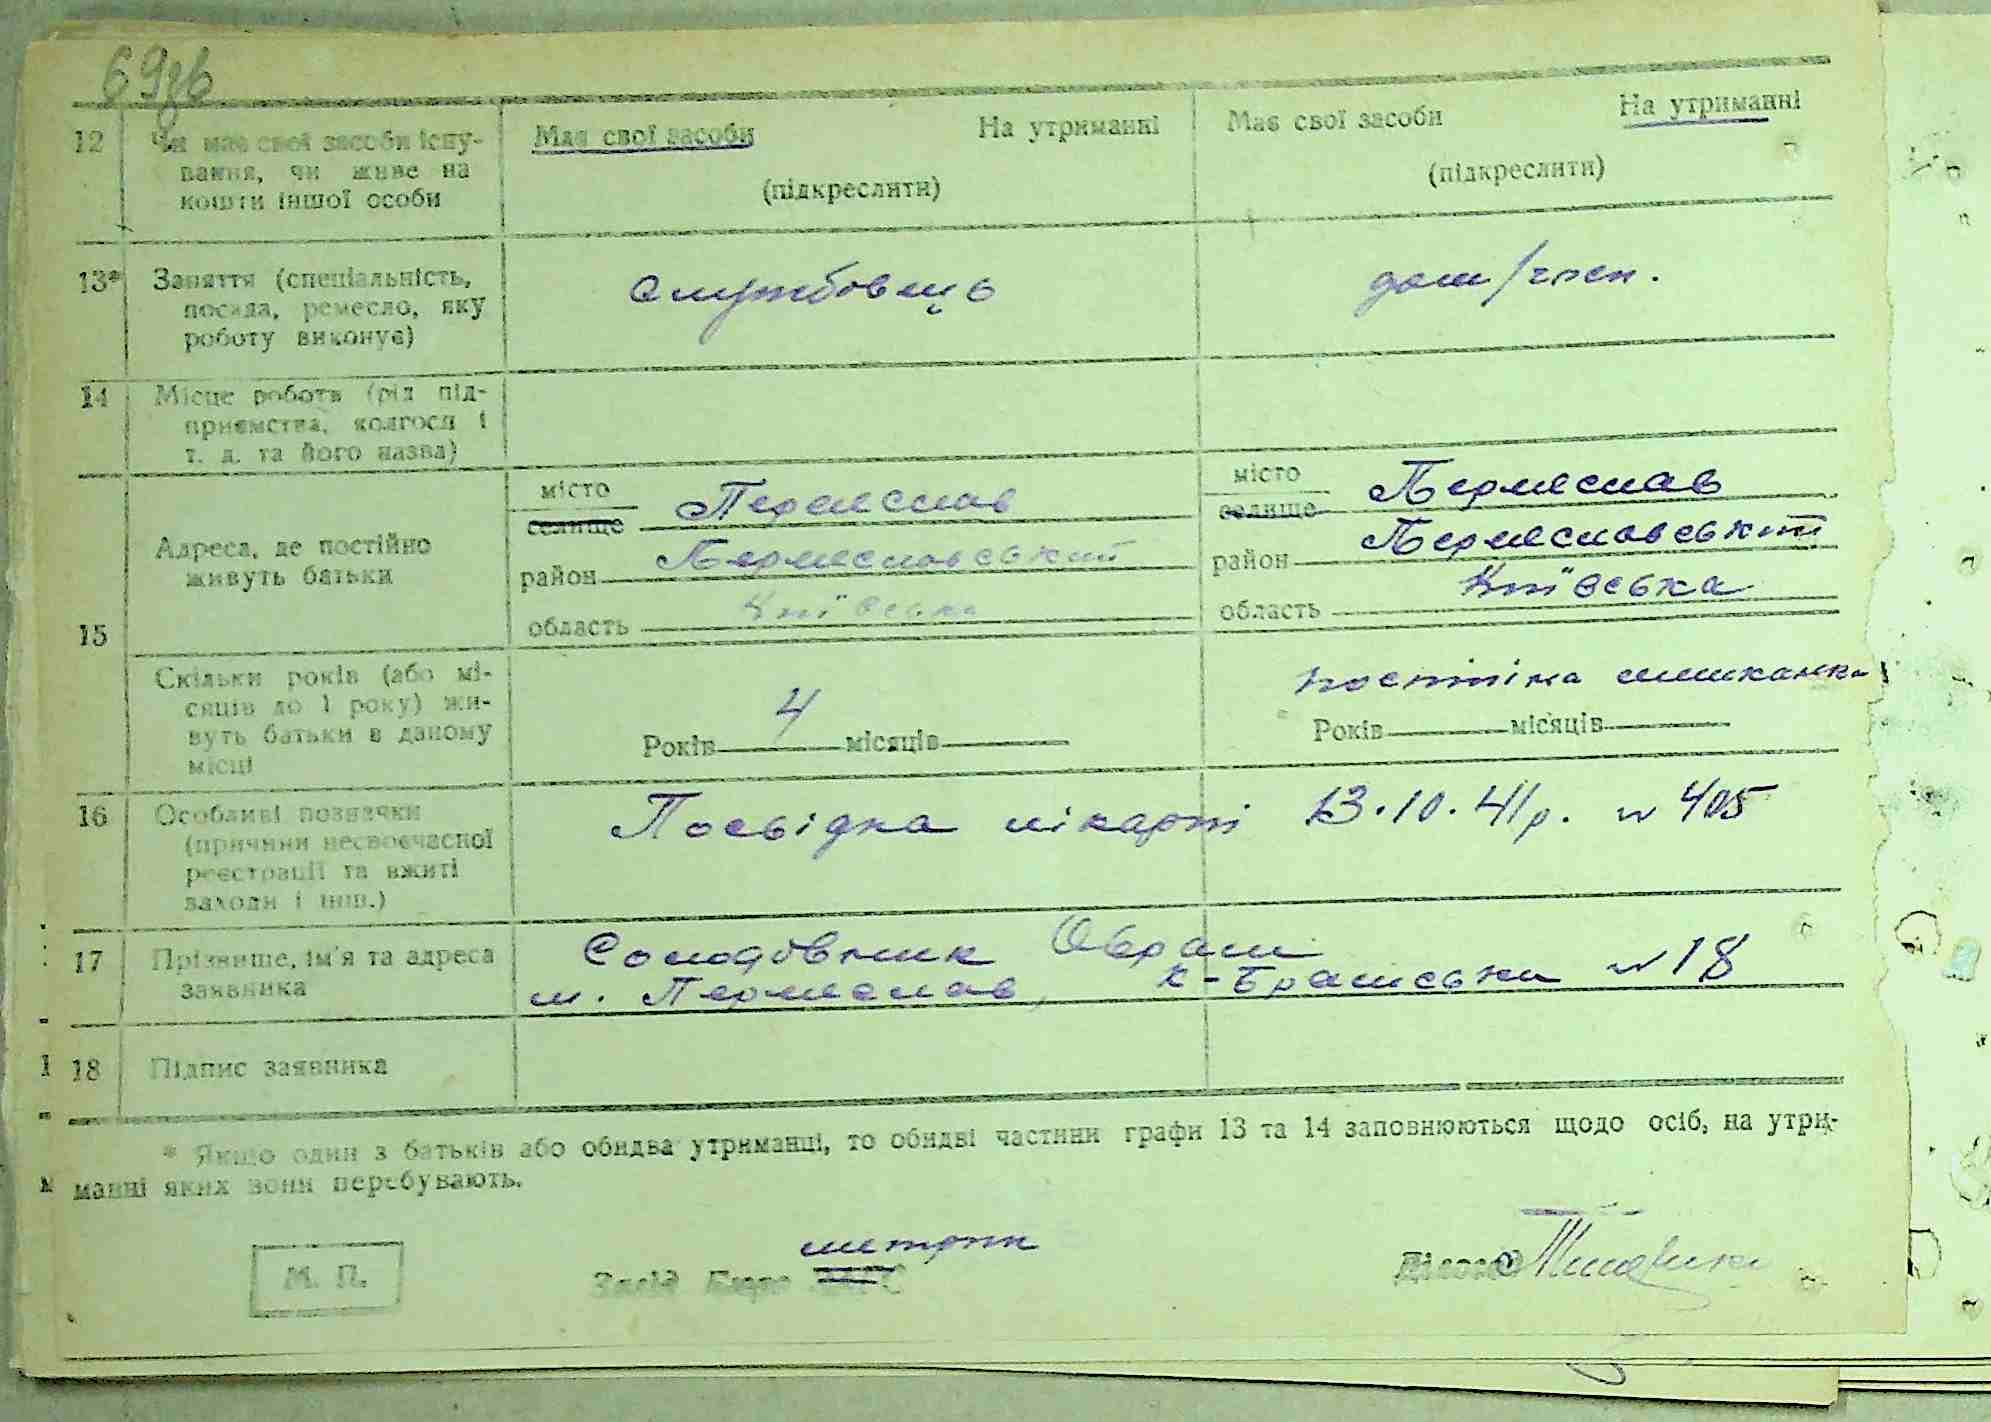 69зв
12 Чи має свої засоби існу- Має свої засоби На утриманні Має свої засоби На утриманні
вання, чи живе на
кошти іншої особи (підкреслити) (підкреслити)
13* Заняття (спеціальність, службовець дом/госп.
посада, ремесло, яку
роботу виконує)
14 Місце роботи (рід під-
приємства, колгосп і
т. д. та його назва)
15 Адреса, де постійно
живуть батьки
місто Переяслав місто Переяслав
селище селище
район Переяславський район Переяславський
область Київська область Київська
Скільки років (або мі- постійна мешканка
сяців до 1 року) жи-
вуть батьки в даному Років 4 місяців Років місяців
місці
16 Особливі позначки Посвідка лікарні 13.10.41р. № 405
(причини несвоєчасної
реєстрації та вжиті
заходи і інш.)
17 Прізвище, ім'я та адреса Солодовник Овраам
заявника м. Переяслав, К-Брамська № 18
18 Підпис заявника
* Якщо один з батьків або обидва утриманці, то обидві частини графи 13 та 14 заповнюються щодо осіб, на утри-
манні яких вони перебувають.
метрик
М. П. Завід Бюро ЗАГС Діловод